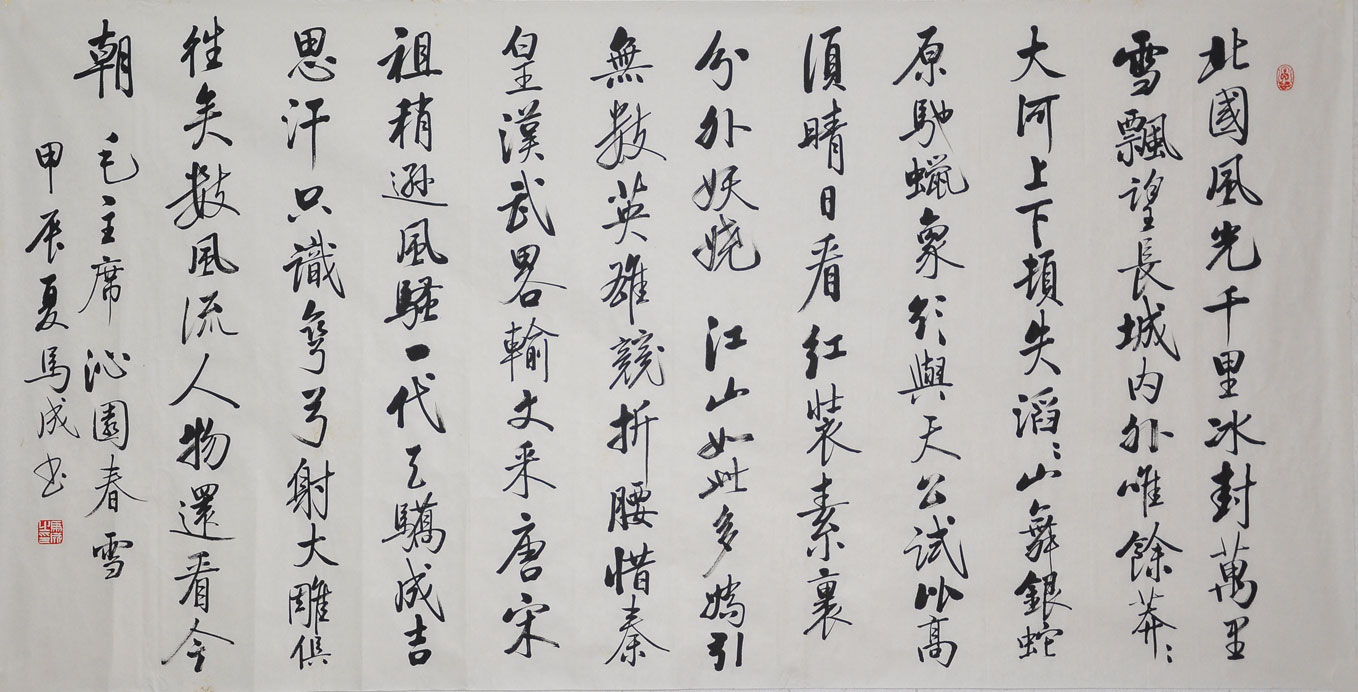 北國風光千里冰封萬里
雪飄望長城内外唯餘莽〻
大河上下頓失滔〻山舞銀蛇
原馳蠟象欲與天公試比高
須晴日看紅裝素裹
分外妖嬈 江山如此多嬌引
無數英雄競折腰惜秦
皇漢武畧輸文采唐宋
祖稍遜風騷一代天驕成吉
思汗只識彎弓射大雕俱
往矣數風流人物還看今
朝 毛主席 沁園春 雪
甲辰夏馬成书